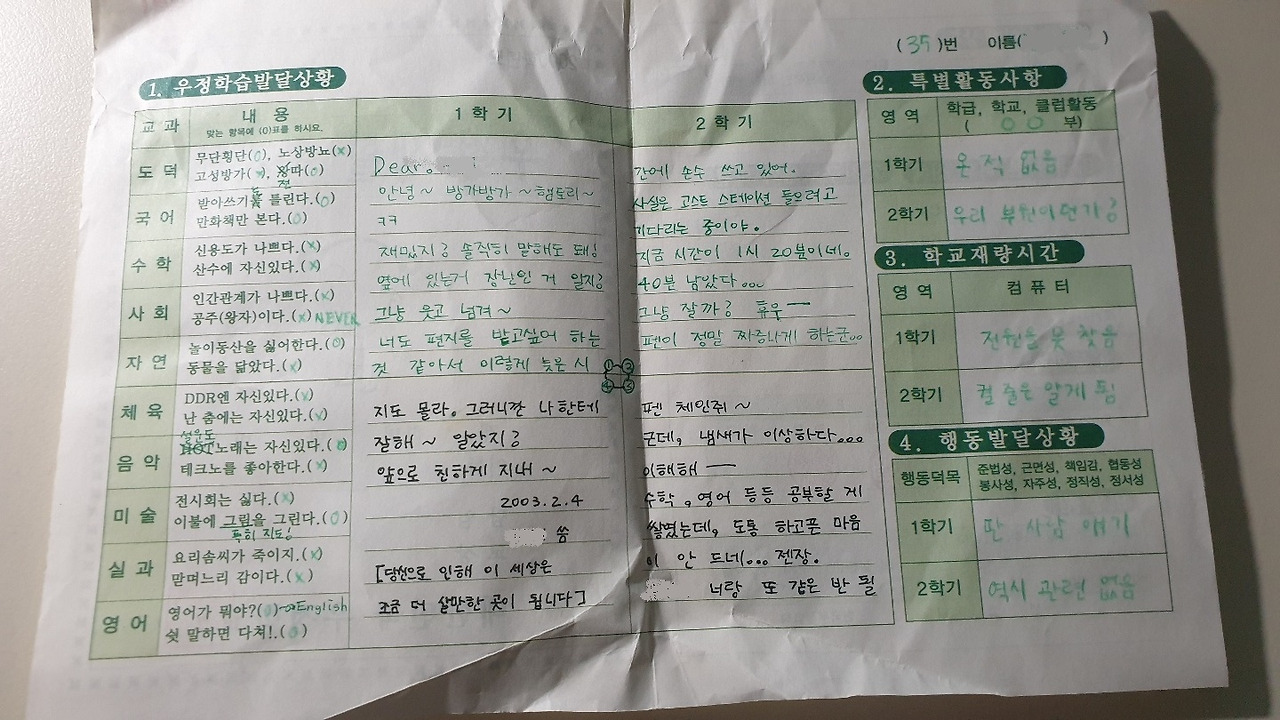 (35)번 이름( )
1. 우정학습발달상황
교과
내용
맞는 항목에 (O)표를 하시오.
1학기
2학기
도덕
무단횡단(O), 노상방뇨(x)
고성방가( ), 왕따(O)
국어
받아쓰기 틀린다.(O)
만화책만 본다.(O)
수학
신용도가 나쁘다.(x)
산수에 자신있다.(x)
사회
인간관계가 나쁘다.(x)
공주(왕자)이다.(x) NEVER
자연
놀이동산을 싫어한다.(O)
동물을 닮았다.(x)
체육
DDR엔 자신있다.(x)
난 춤에는 자신있다.(x)
음악
노래는 자신있다.( )
테크노를 좋아한다.(x)
미술
전시회는 싫다.(x)
이불에 그림을 그린다.(O)
특히 지도!
실과
요리솜씨가 죽이지.(x)
맏며느리 감이다.(x)
영어
영어가 뭐야?(O)→English
쉿 말하면 다쳐!.(O)
Dear. !
안녕~ 방가방가~햄토리~
ㅋㅋ
재밌지? 솔직히 말해도 돼!
옆에 있는거 장난인 거 알지?
그냥 웃고 넘겨~
너도 편지를 받고싶어 하는
것 같아서 이렇게 늦은 시
① ② ④ ③
간에 손수 쓰고 있어.
사실은 고스트 스테이션 들으려고
기다리는 중이야.
지금 시간이 1시 20분이네.
40분 남았다...
그냥 잘까? 휴우—
펜이 정말 짜증나게 하는군..
펜 체인쥐~
근데, 냄새가 이상하다...
이해해—
수학, 영어 등등 공부할 게
쌓였는데, 도통 하고픈 마음
이 안 드네... 젠장.
너랑 또 같은 반 될
지도 몰라. 그러니깐 나한테
잘해~ 알았지?
앞으로 친하게 지내~
2003.2.4
씀
[당신으로 인해 이 세상은
조금 더 살만한 곳이 됩니다]
2. 특별활동사항
영역
학급, 학교, 클럽활동
( OO 부)
1학기
온 적 없음
2학기
우리 부원이던가?
3. 학교재량시간
영역
컴퓨터
1학기
전원을 못 찾음
2학기
켤 줄은 알게 됨
4. 행동발달상황
행동덕목
준법성, 근면성, 책임감, 협동성
봉사성, 자주성, 정직성, 정서성
1학기
딴 사람 얘기
2학기
역시 관련 없음